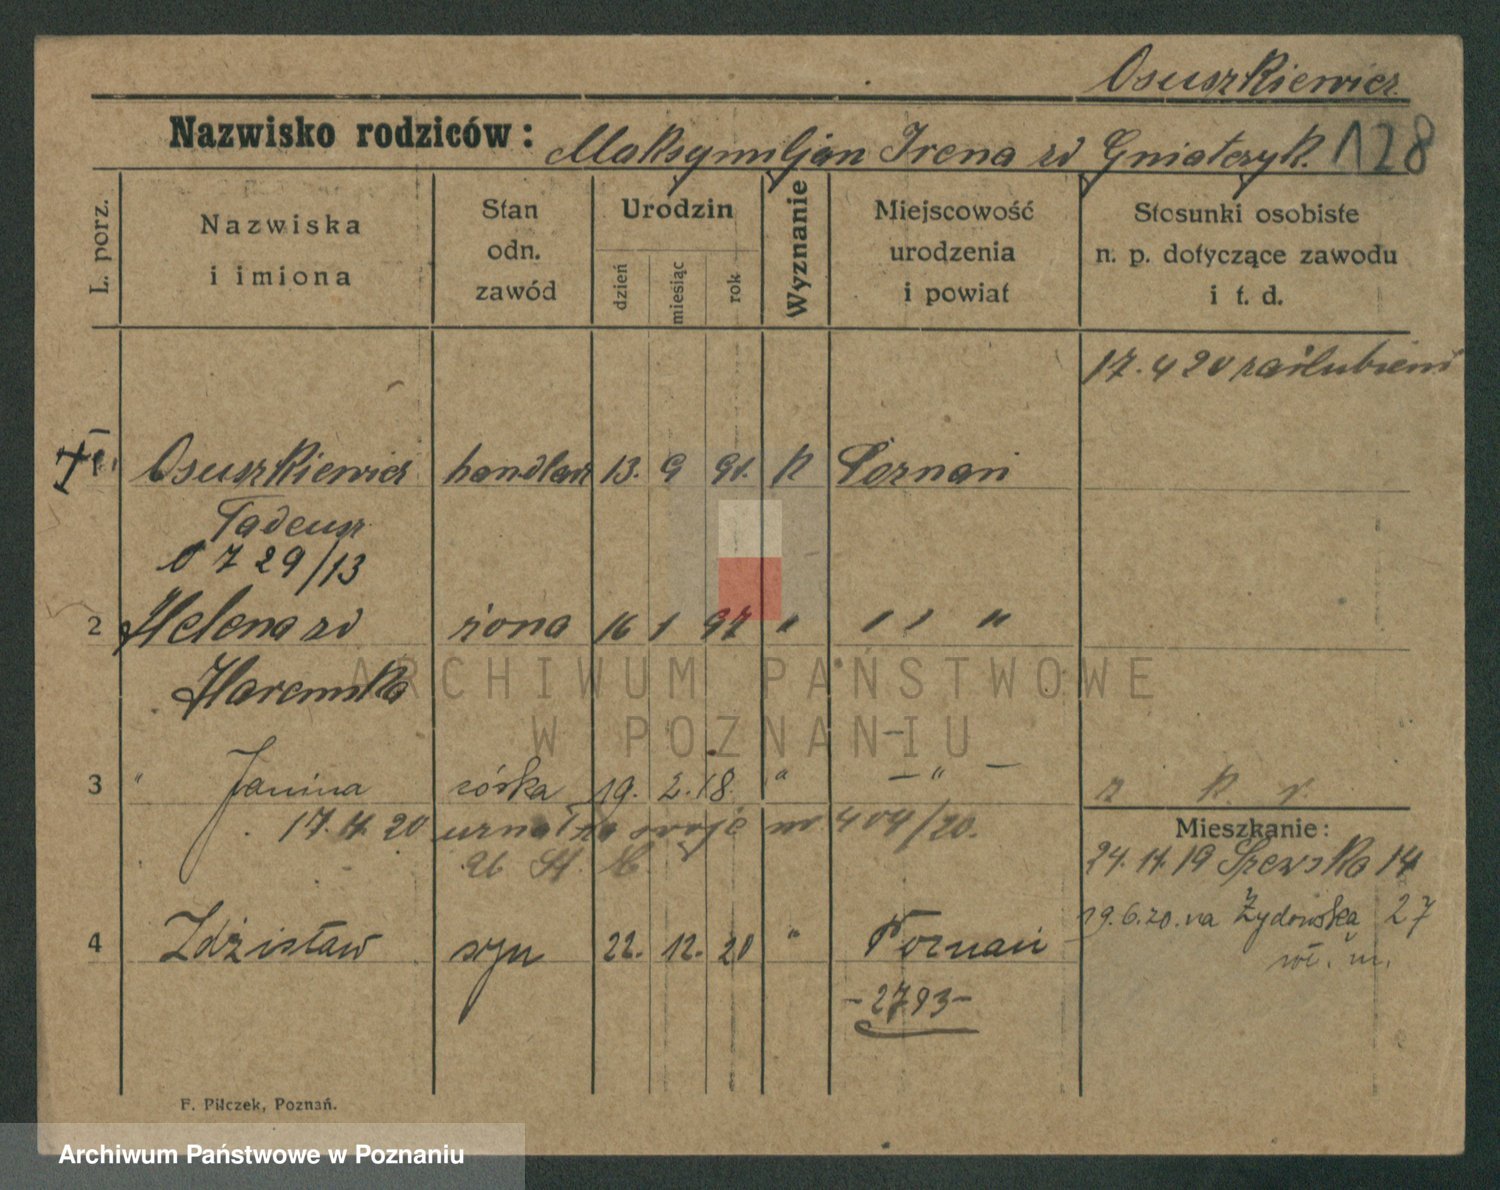 Osuszkiewicz
Nazwisko rodziców: Maksymiljan Irena zd Gniatczyk. 128
L. porz.
Nazwiska
i imiona
Stan
odn.
zawód
Urodzin
dzień
miesiąc
rok
Wyznanie
Miejscowość
urodzenia
i powiat
Stosunki osobiste
n. p. dotyczące zawodu
i t. d.
17. 4 20 zaślubieni
Osuszkiewicz handlarz 13. 9 91. K Poznań
Tadeusz
0 7 29/13
2 Helena zd żona 16 1 97 " " " "
Haremska
3 " Janina córka 19. 2. 18. " — " —
17. 4. 20 uznał za swoje nr 404/20.
Mieszkanie:
24. 11. 19 Szewska 14
19. 6. 20. na Żydowska 27
4 Zdzisław syn 22. 12. 20 " Poznań
- 2793 -
F. Pilczek, Poznań.
ARCHIWUM PAŃSTWOWE
W POZNANIU
Archiwum Państwowe w Poznaniu